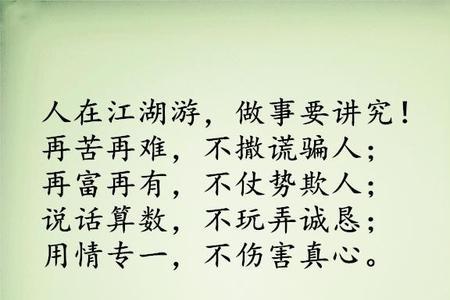 人在江湖游，做事要讲究！
再苦再难，不撒谎骗人；
再富再有，不仗势欺人；
说话算数，不玩弄诚恳；
用情专一，不伤害真心。